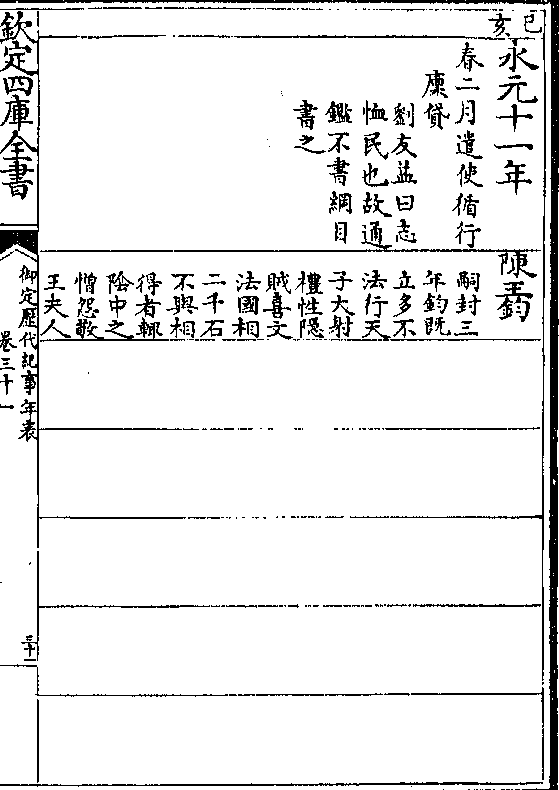 己亥
永元十一年
春二月遣使循行
廩貸
劉友益曰志
恤民也故通
鑑不書綱目
書之
陳王鈞
嗣封三
年鈞既
立多不
法行天
子大射
禮性隠
賊喜文
法國相
二千石
不與相
得者輒
陰中之
憎怨敬
王夫人
欽定四庫全書
御定歷代紀事年表
卷三十一